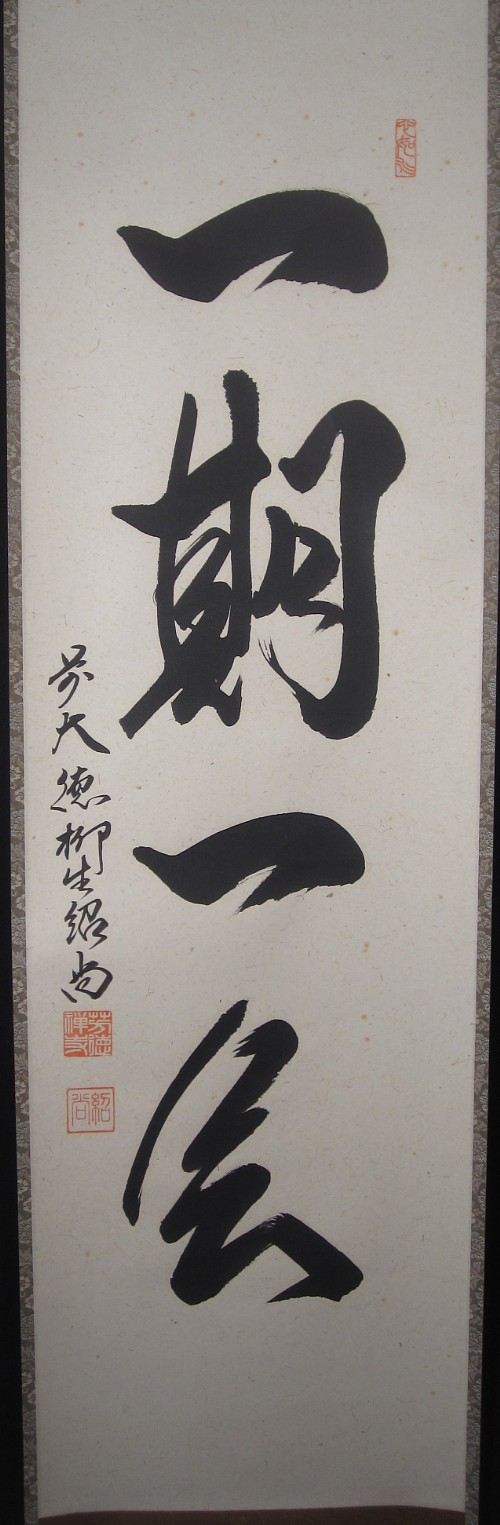 一期一会
前大徳柳生紹尚
芳徳禅寺
紹尚